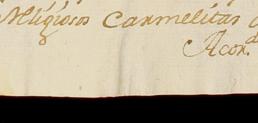 Religiosos Carmelitas
Acord